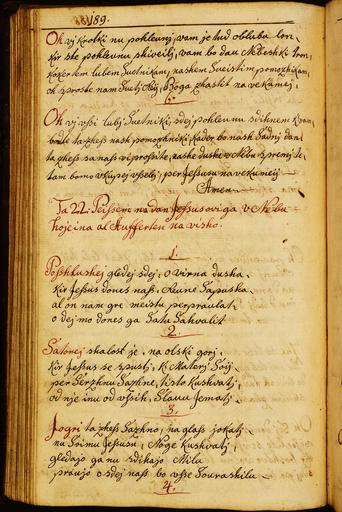 189.
Oh vj Krotki nu pohleunj, vam je tud obluba lon.
Kir ste pohleunu shiveilj, vam bo dau Nebeshki tron,
lubem Suetnikam, nashem Sveistim, pomozhikam,
oh sproste nam Boga zhastit na vekumej.
6.
Oh vj vssi lubj Suetniki, sdej pohleunu sdihnem K vam,
bodte ta zhess nash pomozhniki, Kader bo nash Sadnj dan,
ta zhess sa nass vi prossite, nashe dushe v Nebu spremite,
tam bomo vkupej vsselej, per Jessusu na vekumej.
Amen.
Ta 22. Peissem na dan Jessusoviga v Nebu
hojeina al Auffertën na visho.
1.
Posstikushej gledej sdej, o virna dushka.
Kir Jessus dones nass, Sapusha
al on nam gre meistu perpraulat,
o dej mo dones ga Satu Sahvalit.
2.
Satorej shalost je, na olski gorj,
Kir Jessus se spustj, K' Materj Soij,
per Serzhnu Sazhne, tisto Kushvatj,
od nje inu od vssih, Slavu Jematj.
3.
Jogri ta zhess Sazhno, na glass jokatj,
nu Soimu Jessusu, Noge Kushvatj,
gledajo ga nu sdihajo Milu
praujo o sdej nass bo vsse Sourashilu
4.